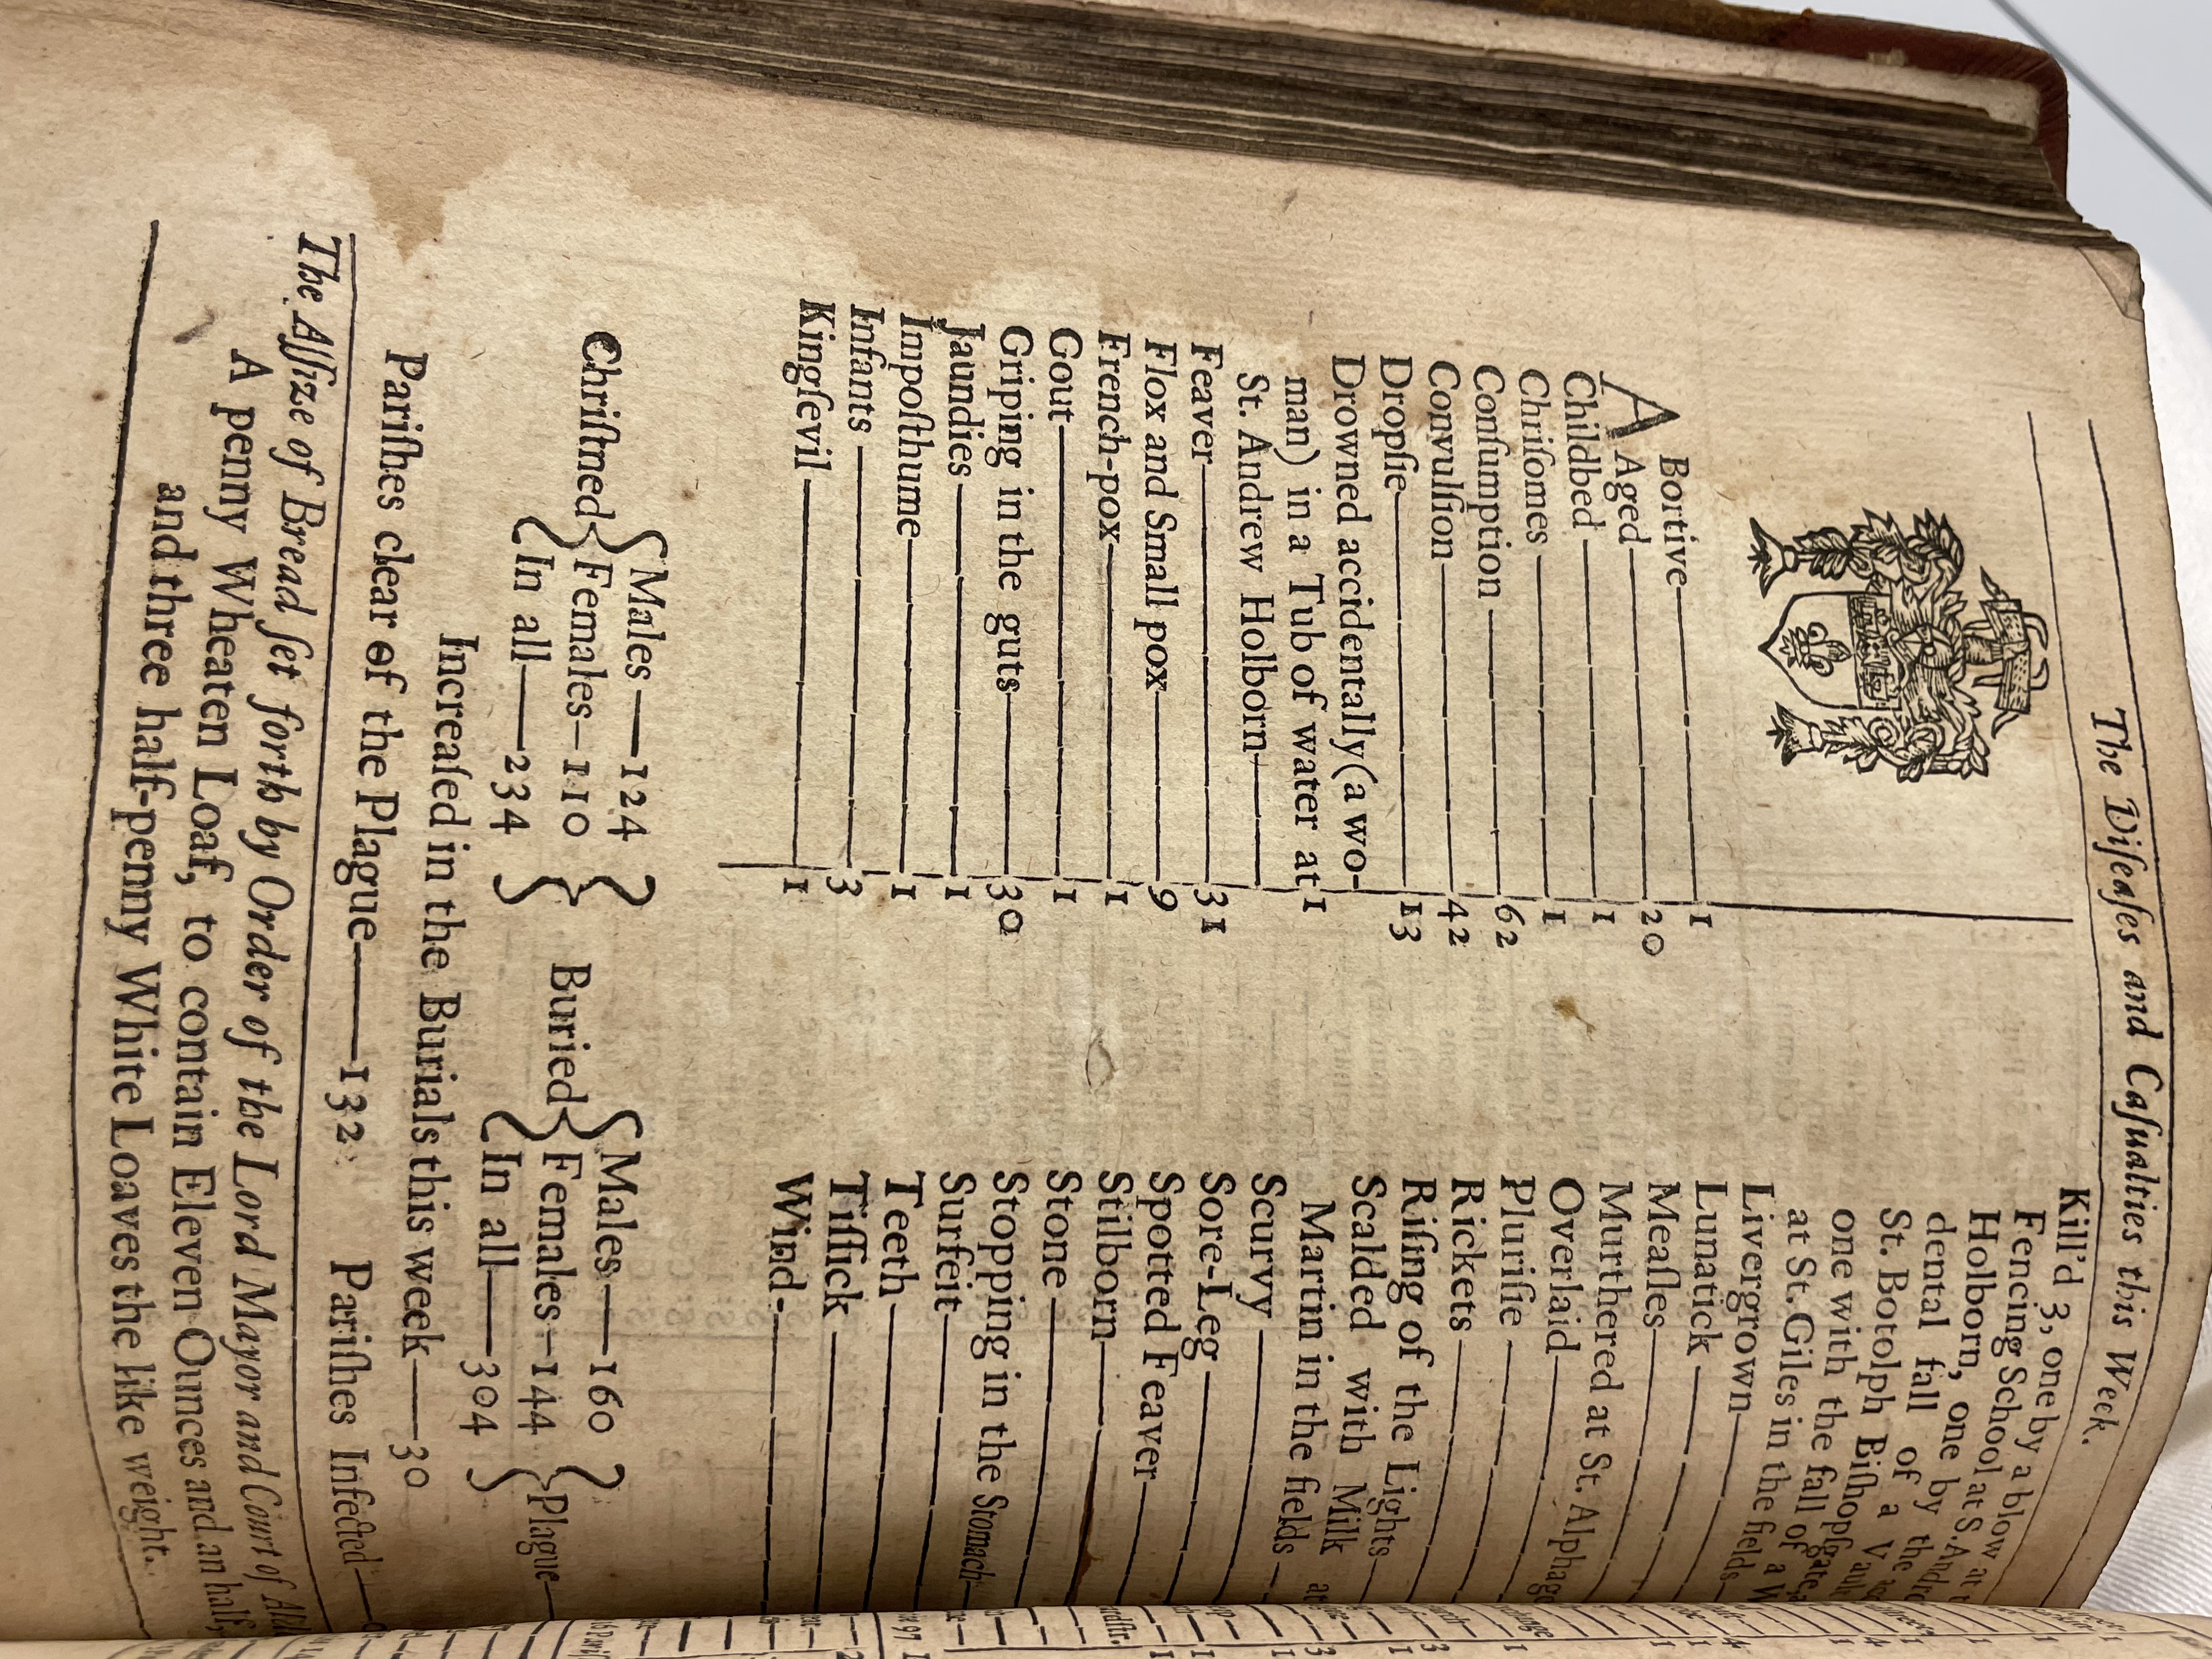 The Diſeaſes and Caſualties this Week.
A Bortive 1
Aged 20
Childbed 1
Chriſomes 1
Conſumption 62
Convulſion 42
Dropſie 13
Drowned accidentally (a wo-
man) in a Tub of water at 1
St. Andrew Holborn
Feaver 31
Flox and Small pox 9
French-pox 1
Gout 1
Griping in the guts 30
Jaundies 1
Impoſthume 1
Infants 3
Kingſevil 1
Kill'd 3, one by a blow at
Fencing School at S. Andre
Holborn, one by the
dental fall of a Vault
St. Botolph Biſhopſgate,
one with the fall of a W
at St. Giles in the fields
Livergrown
Lunatick
Meaſles
Murthered at St. Alphage
Overlaid
Pluriſie
Rickets
Riſing of the Lights
Scalded with Milk at
Martin in the fields
Scurvy
Sore-Leg
Spotted Feaver
Stilborn
Stone
Stopping in the Stomach
Surfeit
Teeth
Tiſſick
Wind
Chriſtned { Males 124
Females 110
In all 234 }
Buried { Males 160
Females 144
In all 304 }
Plague
Increaſed in the Burials this week 30
Pariſhes clear of the Plague 132 Pariſhes Infected
The Aſſize of Bread ſet forth by Order of the Lord Mayor and Court of
A penny Wheaten Loaf, to contain Eleven Ounces and an half,
and three half-penny White Loaves the like weight.